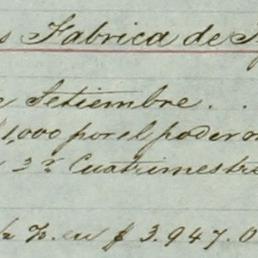 s Fabrica de
e Setiembre . .
$1,000 por el poder
3r. Cuatrimestre
en $3.947.0